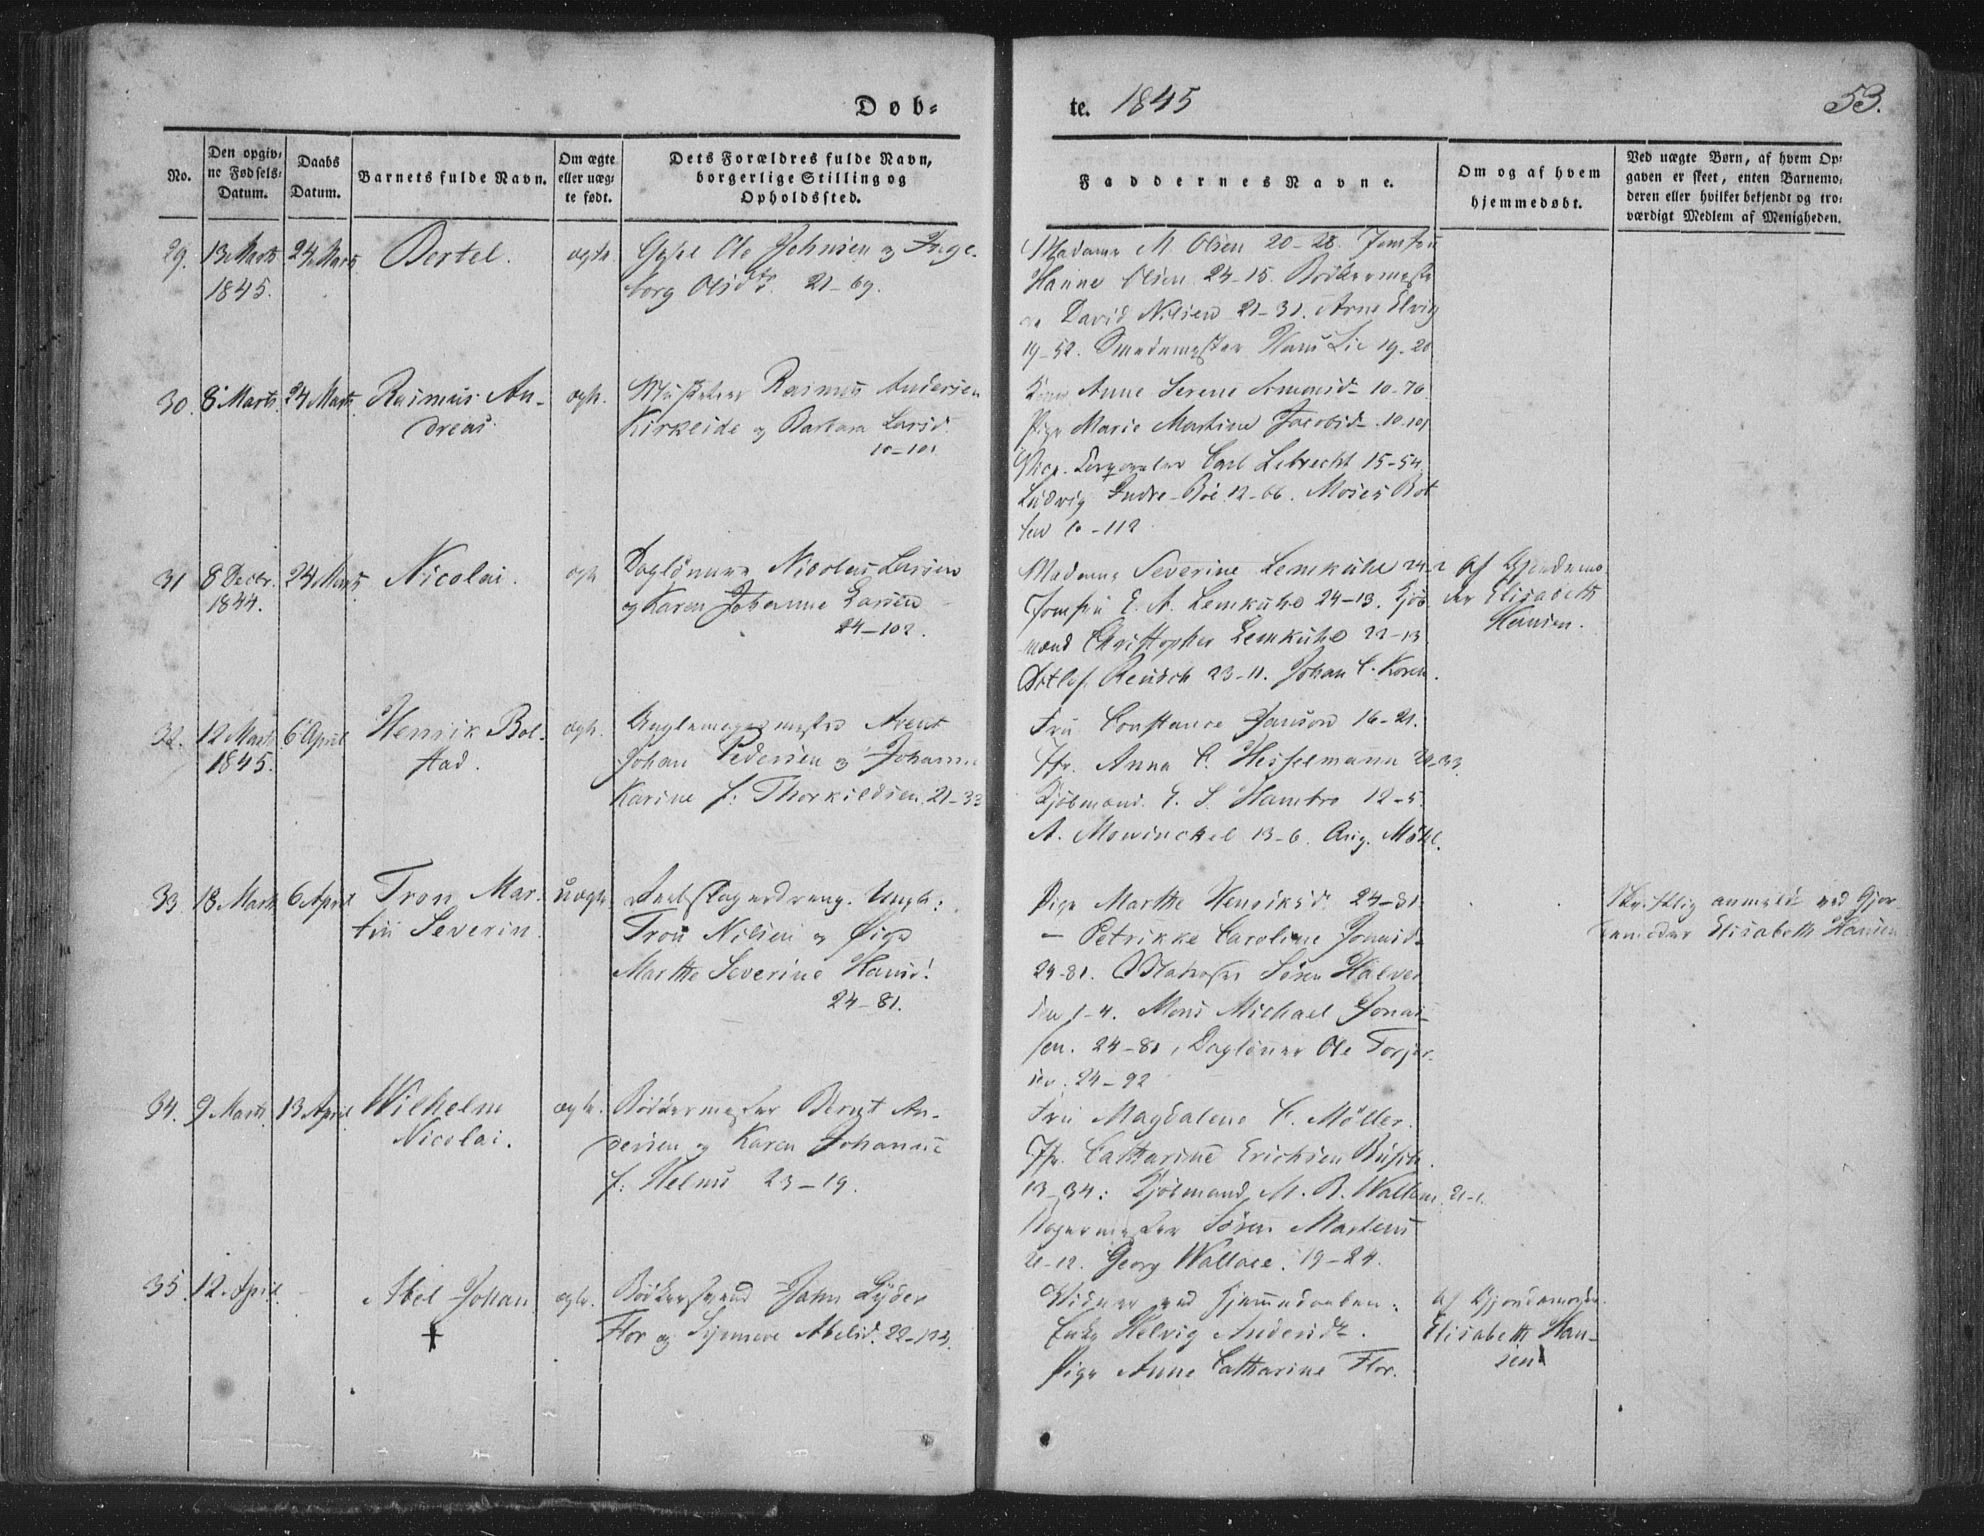 Døb-
te. 1845
53.
No.
Den opgiv-
ne Fødsels-
Datum.
Daabs
Datum.
Barnets fulde Navn.
Om ægte
eller uæg-
te født.
Dets Forældres fulde Navn,
borgerlige Stilling og
Opholdssted.
Faddernes Navne.
Om og af hvem
hjemmedøbt.
Ved uægte Børn, af hvem Op-
gaven er skeet, enten Barnemo-
deren eller hvilket bekjendt og tro-
værdigt Medlem af Menigheden.
29. 13 Marts 24 Marts Bertel. ægte Ole Johnsen og Inge-
1845. borg Olsdt. 21-69.
Madame M. Olsen 20-28. Jomfru
Hanne Olsen 24-15. Bødkermestr
David Nilsen 21-31. Arne Elvig
19-52. Smedemester Hans Lie 19-20
30. 8 Marts 24 Marts Rasmus An- ægte. Rasmus Andersen
dreas Kirkeide og Barbara Larsd.
10-101
Kone Anne Serene Simonsd. 10-70
Pige Marie Martine Jacobsd. 10-101
Vice-Corporaler Carl Lebrecht 15-54
Ludvig Indre-Bøe 12-66. Moses Bot
ten 10-112
31 8 Decbr. 24 Marts Nicolai. ægte Daglönner Nicolai Larsen
1844. og Karen Johanne Larsen
24-102.
Madame Severine Lemkuhl 24-2
Jomfru E. A. Lemkuhl 24-13. Kjöb
mænd Christopher Lemkuhl 22-13
Ditlef Reusch 23-11. Johan C. Koren.
Af Gjordemo
der Elisabeth
Hansen.
32. 12 Marts 6 April Henrik Bol- ægte. Arent
1845. stad. Johan Pedersen og Johanne
Karine f: Thorkildsen. 21-33
Fru Constance Janson 16-21.
Jfr. Anna C. Hesselmann 20-33.
Kjöbmænd E. S. Hambro 12-5.
A. Mowinckel 13-6. Aug. Möhl.
33. 18 Marts 6 April Tron Mar- uægte Ungk:
tin Severin Tron Nilsen og Pige
Marthe Severine Hansd.
24-81.
Pige Marthe Henriksd. 24-81
— Petrikke Caroline Jonasd.
24-81. Matros Sören Halvor
sen 1-4. Mons Michael Jonas-
sen. 24-81, Daglönner Ole Torger-
sen. 24-92
Skriftlig anmeldt ved Gjor-
demoder Elisabeth Hansen
34. 9 Marts 13 April Wilhelm ægte. Bödkermester Bernt An-
Nicolai. dersen og Karen Johanne
f: Helms 23-19.
Fru Magdalene C. Möller.
Jfr. Catharine Erichsen Busch.
13-34: Kjöbmænd M. B. Wallem 21-1.
Bagermester Sören Martens
21-12. Georg Wallace. 19-24.
35. 12 April. Abel Johan ægte. Bödkersvend John Lyder
† Flor og Synneve Abelsd. 22-123.
Vidner ved Hjemmedaaben:
Enke Helvig Andersdt.
Pige Anne Catharine Flor.
Af Gjordemoder
Elisabeth Han-
sen